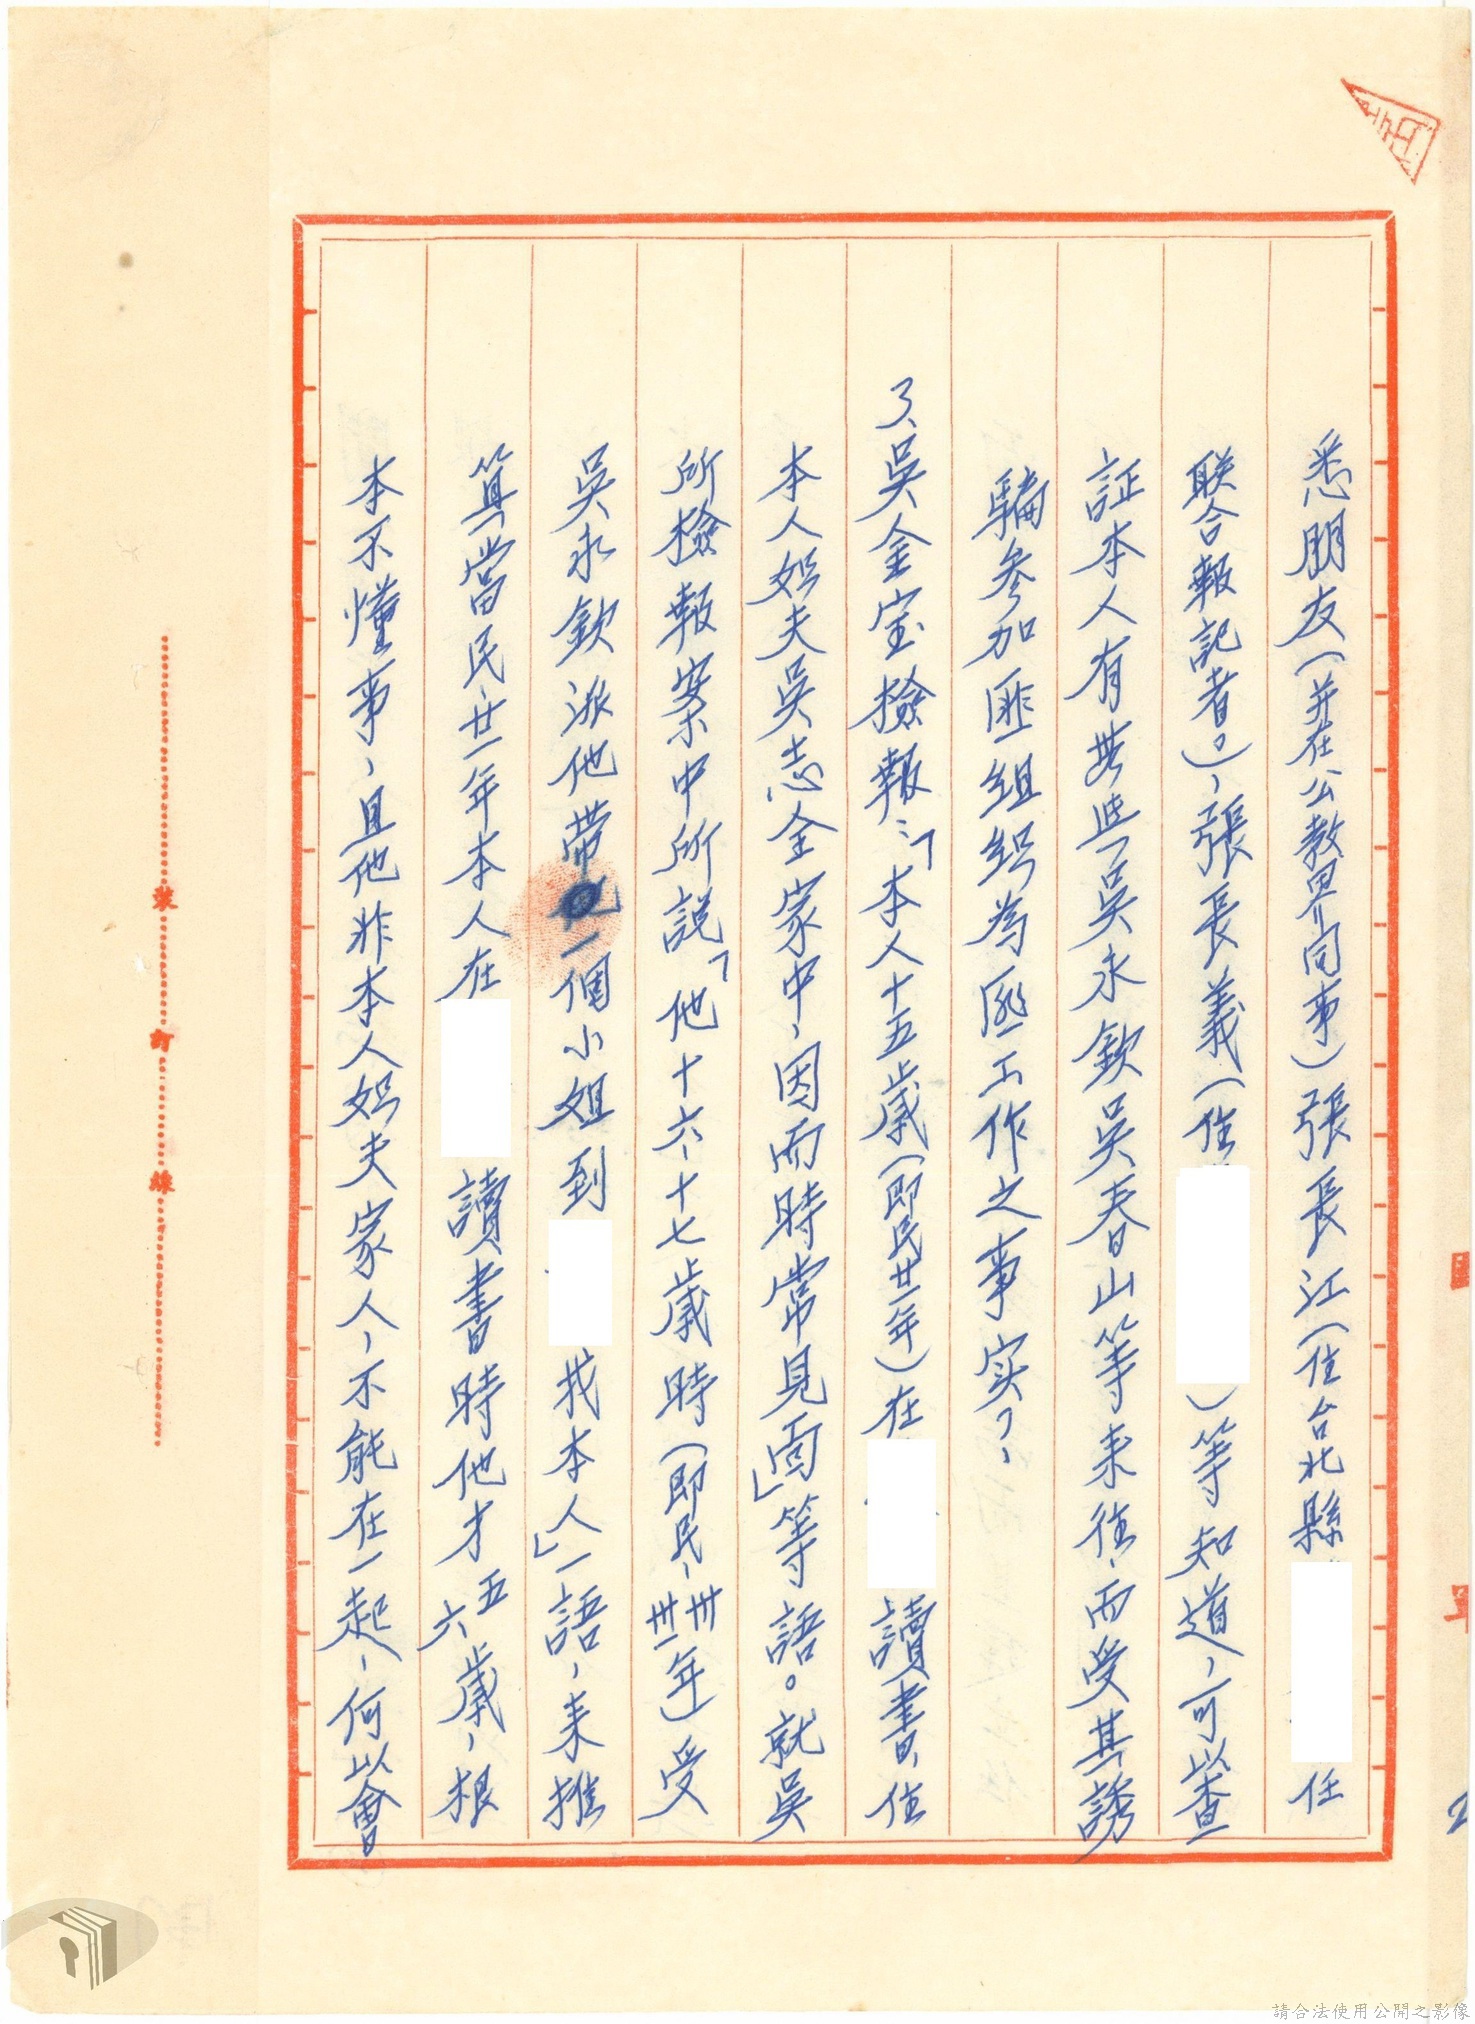 悉朋友(并在公教界同事)張長江(住台北縣 任
联合報記者。),張長義(住 )等知道,可以查
証本人有無些吳永欽吳春山等来往,而受其誘
騙参加匪組织為匪工作之事实?
3、吳金宝檢報:「本人十五歲(即民廿一年)在 讀書,住
本人姐夫吳志全家中,因而時常見面」等語。就吳
所檢報案中所說「他十六、十七歲時(即民、卅卅一年)受
吳永欽派他帶 一個小姐到 找本人」一語,来推
算當民、廿一年本人在 讀書時他才五六歲,根
本不懂事,且他非本人姐夫家人,不能在一起,何以會
裝訂線
請合法使用公開之影像